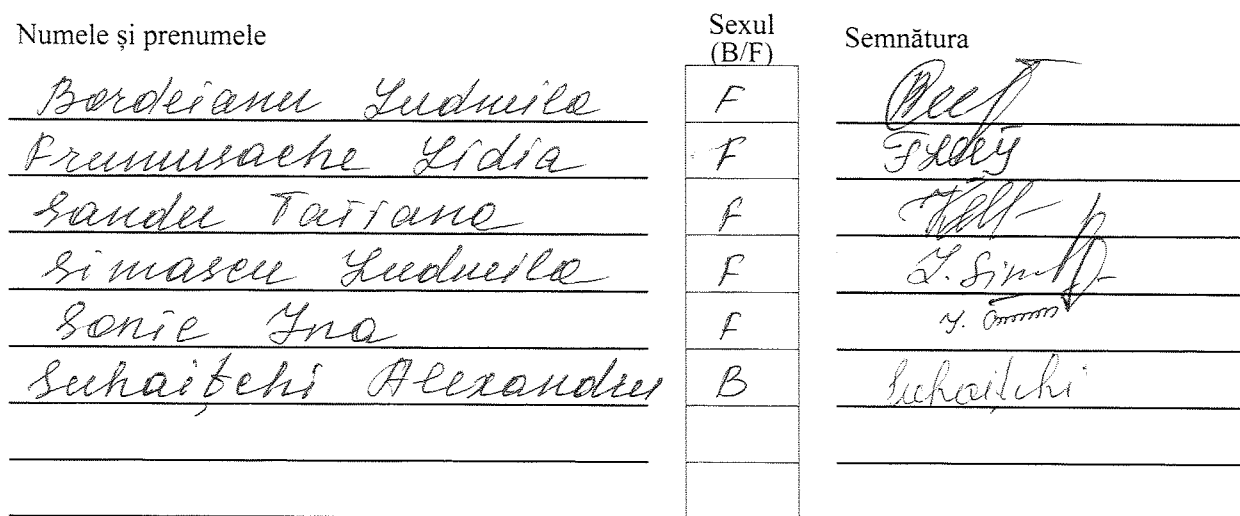 Numele și prenumele Sexul (B/F) Semnătura
Bordeianu Ludmila F
Frumusache Lidia F
Sandu Tatiana F
Simascu Ludmila F L. Sim
Sonic Ina F
Suhaițchi Alexandru B Suhaițchi